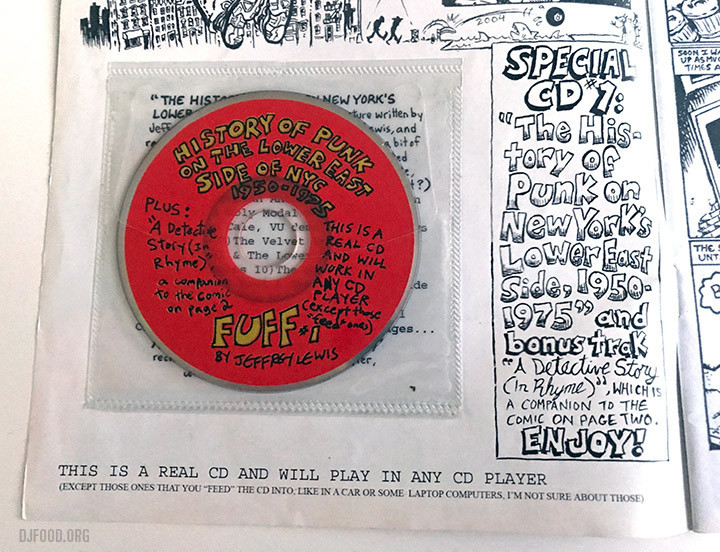 2004
SPECIAL
CD #1:
"The His-
tory of
Punk on
New York's
Lower East
Side, 1950-
1975" and
bonus trak
"A Detective Story
(In Rhyme)", WHICH IS
A COMPANION TO THE
COMIC ON PAGE TWO.
ENJOY!
"THE HIST NEW YORK'S
LOWER ture written by
Jeff wis, and
a bit of
HISTORY OF PUNK
ON THE LOWER EAST
SIDE OF NYC
1950-1975
PLUS:
"A Detective
Story (In
Rhyme)"
a companion
to the comic
on page 2
THIS IS A
REAL CD
AND WILL
WORK IN
ANY CD
PLAYER
(except those
"feed" ones)
oly Modal
Cale, VU de
The Velvet
& The Lowe
s 10) The
ges...
FUFF #1
BY JEFFREY LEWIS
THIS IS A REAL CD AND WILL PLAY IN ANY CD PLAYER
(EXCEPT THOSE ONES THAT YOU "FEED" THE CD INTO, LIKE IN A CAR OR SOME LAPTOP COMPUTERS, I'M NOT SURE ABOUT THOSE)
SOON I WA
UP AS MUC
TIMES A
THE S
UNT
DJFOOD.ORG